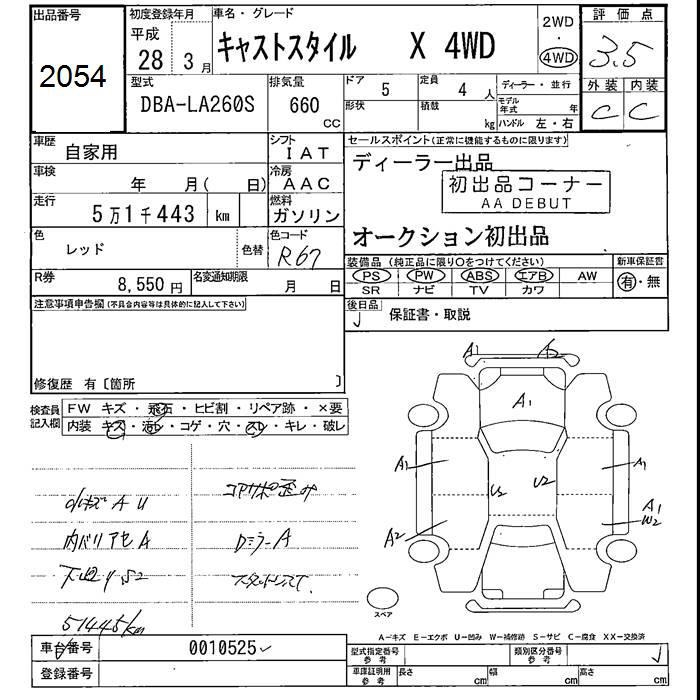 出品番号
2054
初度登録年月
平成
28 3月
車名・グレード
キャストスタイル X 4WD
2WD
・
4WD
評価点
3.5
外装 内装
C C
型式
DBA-LA260S
排気量
660
cc
ドア 5
形状
定員 4 人
積載 kg
ディーラー・並行
モデル年式 年
ハンドル 左・右
車歴
自家用
シフト
IAT
車検
年 月( 日)
冷房
AAC
走行
5万1千443 km
燃料
ガソリン
色
レッド
色替
色コード
R67
R券
8,550円
名変通知期限
月 日
セールスポイント(正常に機能するものに限ります)
ディーラー出品
初出品コーナー
AA DEBUT
オークション初出品
装備品(純正品に限り○をつけてください)
新車保証書
PS PW ABS エアB AW
SR ナビ TV カワ
有・無
後日品
保証書・取説
注意事項申告欄(不具合内容等は具体的に記入して下さい)
修復歴 有〔箇所 〕
検査員
記入欄
FW キズ・飛石・ヒビ割・リペア跡・×要
内装 キズ・汚レ・コゲ・穴・スレ・キレ・破レ
小キズ A U
コアサポ歪み
内バリアセA
DミラーA
下廻りS2
51445km
A1
A1
A1 A1
U2 U2
A2
A1
W2
スペア
A−キズ E−エクボ U−凹み W−補修跡 S−サビ C−腐食 XX−交換済
車台番号
0010525
登録番号
型式指定番号
参考
類別区分番号
参考
車庫証明用
参考
長さ cm
幅 cm
高さ cm